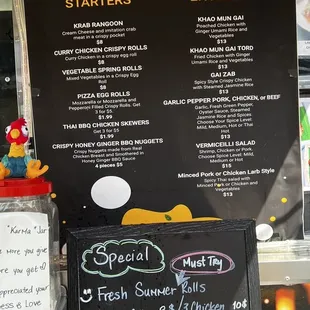 STARTERS
KRAB RANGOON
Cream Cheese and imitation crab
meat in a crispy pocket
$8
CURRY CHICKEN CRISPY ROLLS
Curry Chicken in a crispy egg roll
$8
VEGETABLE SPRING ROLLS
Mixed Vegetables in a Crispy Egg
Roll
$8
PIZZA EGG ROLLS
Mozzarella or Mozzarella and
Pepperoni Filled Crispy Rolls. Get
3 for $5
$1.99
THAI BBQ CHICKEN SKEWERS
Get 3 for $5
$1.99
CRISPY HONEY GINGER BBQ NUGGETS
Crispy Nuggets made from Real
Chicken Breast and Smothered in
Honey Ginger BBQ Sauce
4 pieces $5
KHAO MUN GAI
Poached Chicken with
Ginger Umami Rice and
Vegetables
$13
KHAO MUN GAI TORD
Fried Chicken with Ginger
Umami Rice and Vegetables
$13
GAI ZAB
Spicy Style Crispy Chicken
with Steamed Jasmine Rice
$13
GARLIC PEPPER PORK, CHICKEN, or BEEF
Garlic, Fresh Green Pepper,
Oyster Sauce, Steamed
Jasmine Rice and Spices
Choose Your Spice Level:
Mild, Medium, Hot or Thai
Hot
$13
VERMICELLI SALAD
Shrimp, Chicken or Pork
Choose Spice Level: Mild,
Medium, or Hot
$15
Minced Pork or Chicken Larb Style
Spicy Thai salad with
Minced Pork or Chicken and
Vegetables
$13
Special
Must Try
Fresh Summer Rolls
$/3 Chicken 10$
Karma Jar
More you give
more you get
appreciated your
ness is Love